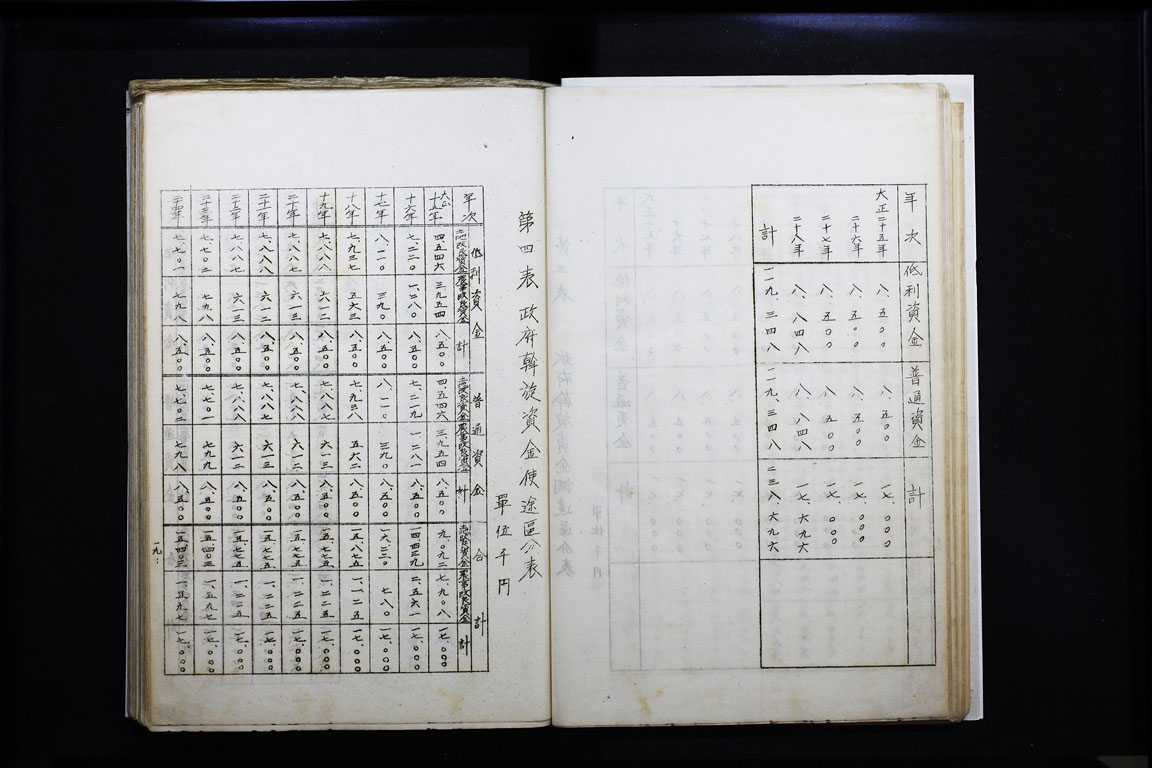 年次 低利資金 普通資金 計
大正二十五年 八、五〇〇 八、五〇〇 一七、〇〇〇
二十六年 八、五〇〇 八、五〇〇 一七、〇〇〇
二十七年 八、五〇〇 八、五〇〇 一七、〇〇〇
二十八年 八、八四八 八、八四八 一七、六九六
計 一一九、三四八 一一九、三四八 二三八、六九六
第四表 政府斡旋資金使途區分表
單位千円
年次 低利資金 普通資金 合計
土地改良資金 農事改良資金 計 土地改良資金 農事改良資金 計 土地改良資金 農事改良資金 計
大正十五年 四、五四六 三、九五四 八、五〇〇 四、五四六 三、九五四 八、五〇〇 九、〇九二 七、九〇八 一七、〇〇〇
十六年 七、二二〇 一、二八〇 八、五〇〇 七、二一九 一、二八一 八、五〇〇 一四、四三九 二、五六一 一七、〇〇〇
十七年 八、一一〇 三九〇 八、五〇〇 八、一一〇 三九〇 八、五〇〇 一六、二二〇 七八〇 一七、〇〇〇
十八年 七、九三七 五六三 八、五〇〇 七、九三八 五六二 八、五〇〇 一五、八七五 一、一二五 一七、〇〇〇
十九年 七、八八八 六一二 八、五〇〇 七、八八七 六一三 八、五〇〇 一五、七七五 一、二二五 一七、〇〇〇
二十年 七、八八七 六一三 八、五〇〇 七、八八八 六一二 八、五〇〇 一五、七七五 一、二二五 一七、〇〇〇
二十一年 七、八八八 六一二 八、五〇〇 七、八八七 六一三 八、五〇〇 一五、七七五 一、二二五 一七、〇〇〇
二十二年 七、八八七 六一三 八、五〇〇 七、八八八 六一二 八、五〇〇 一五、七七五 一、二二五 一七、〇〇〇
二十三年 七、七〇二 七九八 八、五〇〇 七、七〇一 七九九 八、五〇〇 一五、四〇三 一、五九七 一七、〇〇〇
二十四年 七、七〇一 七九九 八、五〇〇 七、七〇二 七九八 八、五〇〇 一五、四〇三 一、五九七 一七、〇〇〇
一九